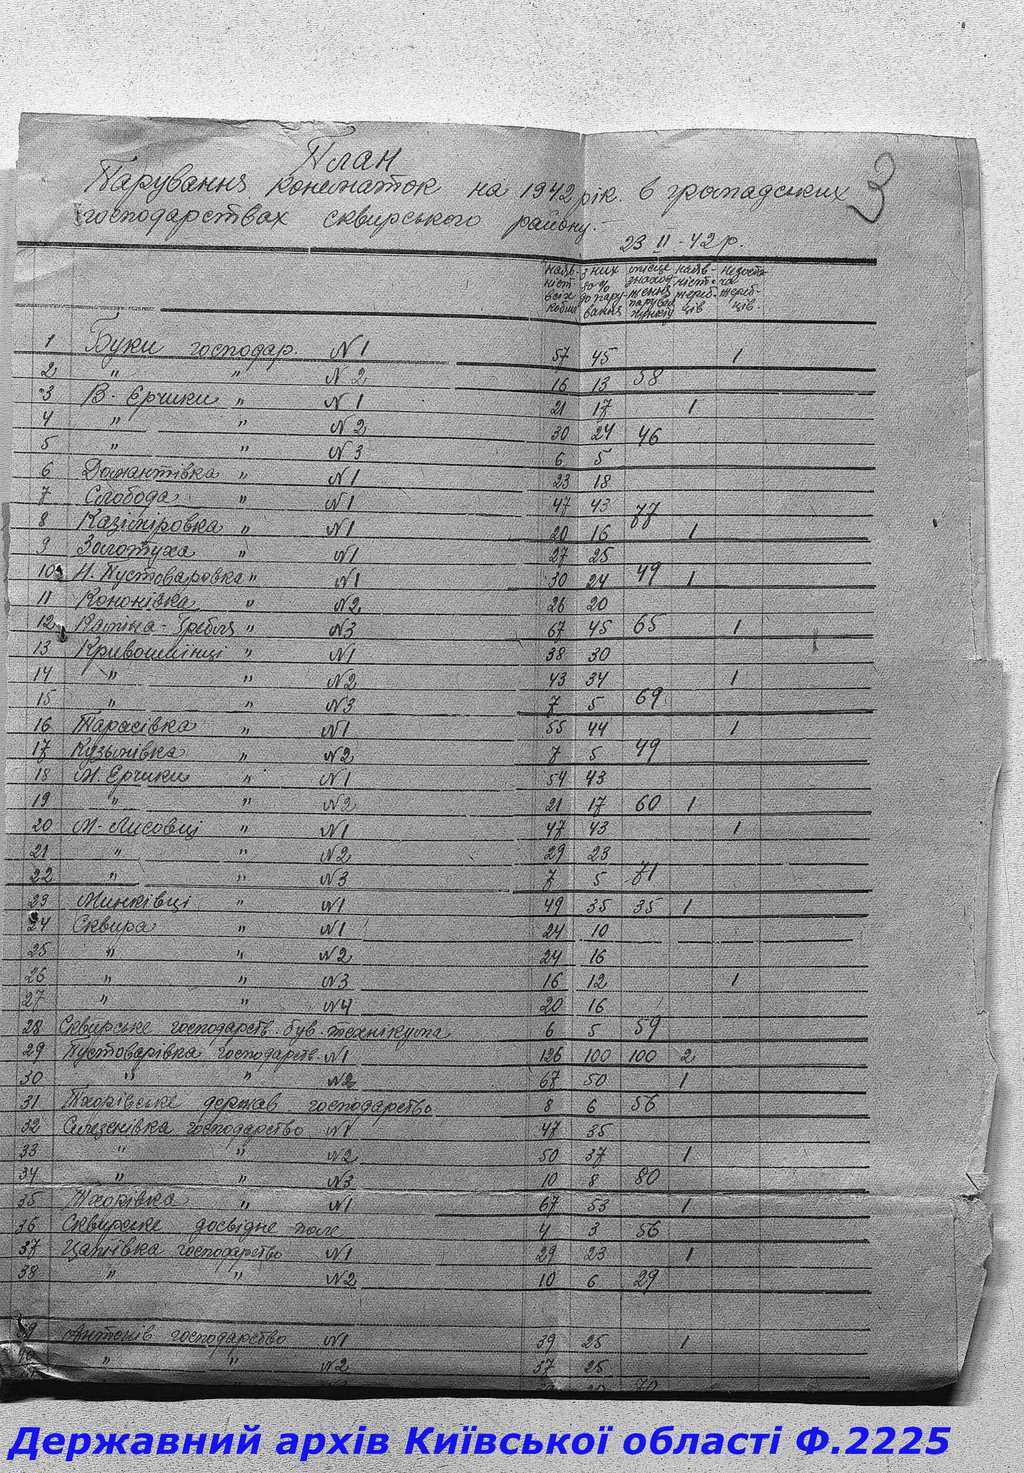 3
План
Парування конематок на 1942 рік. в громадських
господарствах сквирського району.
23 II - 42 р.
наяв- з них місце наяв- недоста
ність 80% знаход ність ча
всіх до пару- ження жереб- жереб-
кобил вання парувал. пункту ців ців.
1 Буки господар. N1 57 45 1
2 " " N2 16 13 58
3 В. Єрчики " N1 21 17 1
4 " " N2 30 24 46
5 " " N3 6 5
6 Домантівка " N1 23 18
7 Слобода " N1 47 43 77
8 Казіміровка " N1 20 16 1
9 Золотуха " N1 27 25
10 Н. Пустоваровка " N1 30 24 49 1
11 Кононівка " N2 26 20
12 Камяна-Гребля " N3 67 45 65 1
13 Кривошиїнці " N1 38 30
14 " " N2 43 34 1
15 " " N3 7 5 69
16 Тарасівка " N1 55 44 1
17 Кузьмівка " N2 7 5 49
18 М. Єрчики " N1 54 43
19 " " N2 21 17 60 1
20 М-Лисовці " N1 47 43 1
21 " " N2 29 23
22 " " N3 7 5 71
23 Миньківці " N1 49 35 35 1
24 Сквира " N1 24 10
25 " " N2 24 16
26 " " N3 16 12 1
27 " " N4 20 16
28 Сквирське господарств. був. технікума 6 5 59
29 Пустоварівка господарств N1 126 100 100 2
30 " " N2 67 50 1
31 Тхорівське держав господарство 8 6 56
32 Селезенівка господарство N1 47 35
33 " " N2 50 37 1
34 " " N3 10 8 80
35 Тхорівка " N1 67 53 1
36 Сквирське досвідне поле 4 3 56
37 Цапіївка господарство N1 29 23 1
38 " " N2 10 6 29
39 Антонів господарство N1 39 25 1
40 " " N2 37 25
70
Державний архів Київської області Ф.2225